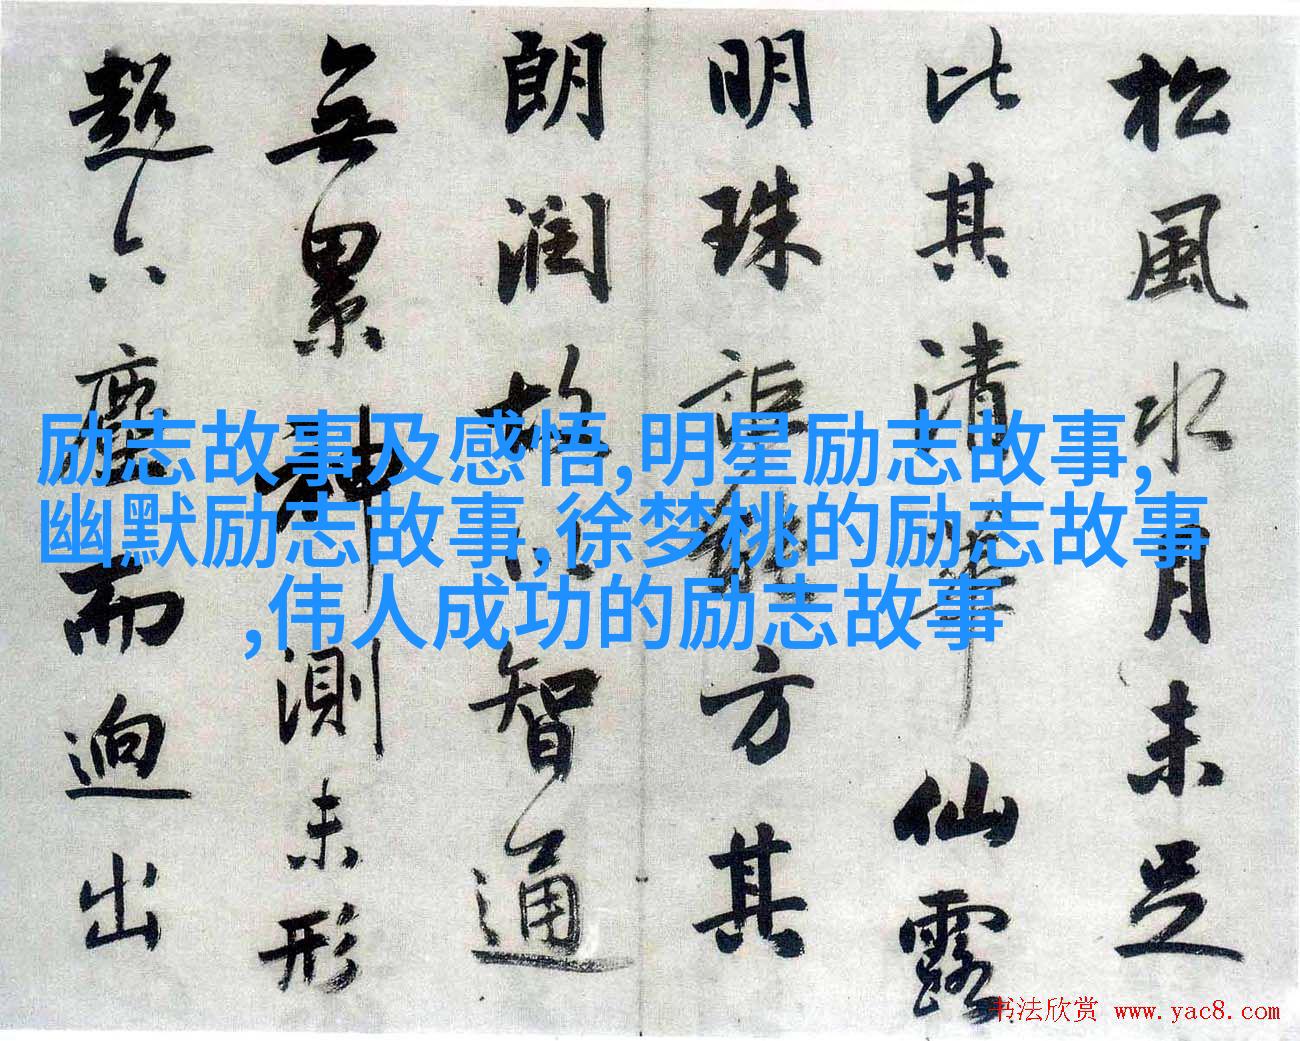 松風水月未足
比其清華仙露
明珠詎能方其
朗潤故以智通
無累神測未形
超六塵而迥出
励志故事及感悟,明星励志故事,
幽默励志故事,徐梦桃的励志故事
,伟人成功的励志故事
书法欣赏 www.yac8.com